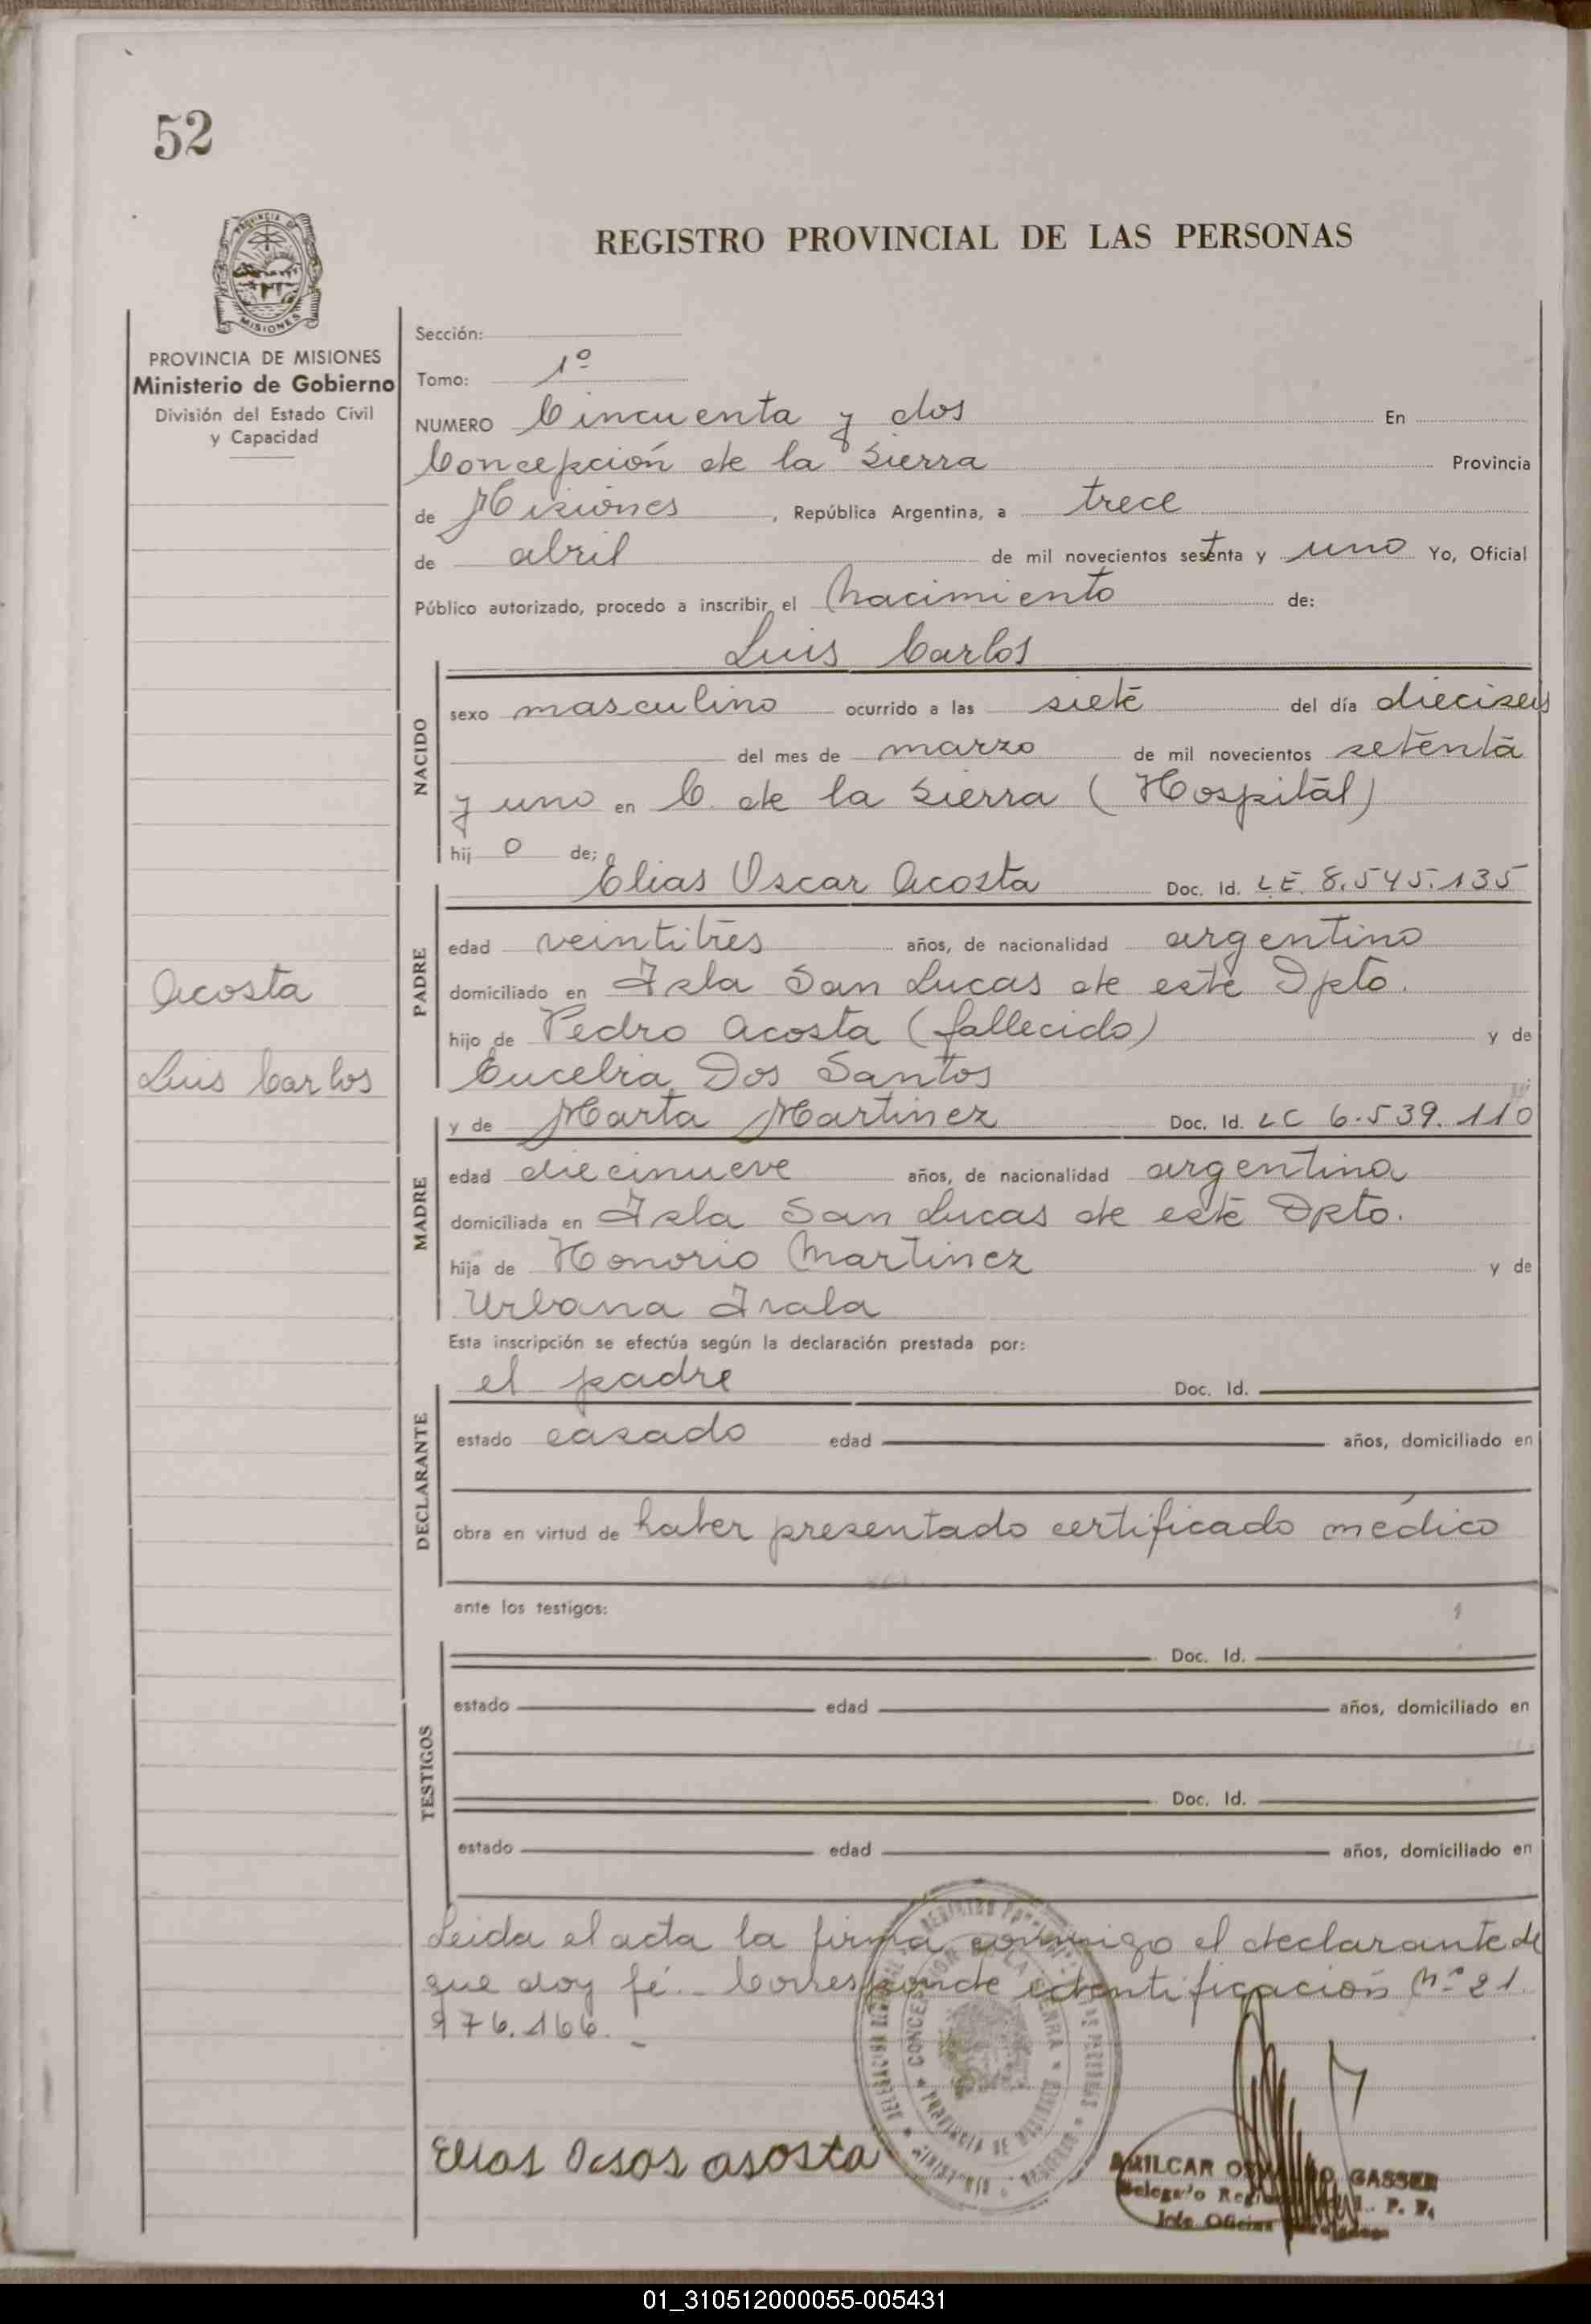 52
PROVINCIA DE
MISIONES
REGISTRO PROVINCIAL DE LAS PERSONAS
PROVINCIA DE MISIONES
Ministerio de Gobierno
División del Estado Civil
y Capacidad
Acosta
Luis Carlos
Sección:
Tomo: 1º
NUMERO Cincuenta y dos En
Concepción de la Sierra Provincia
de Misiones, República Argentina, a trece
de abril de mil novecientos setenta y uno Yo, Oficial
Público autorizado, procedo a inscribir el Nacimiento de:
Luis Carlos
NACIDO
sexo masculino ocurrido a las siete del día dieciseis
del mes de marzo de mil novecientos setenta
y uno en C. de la Sierra (Hospital)
hij o de;
PADRE
Elias Oscar Acosta Doc. Id. LE. 8.545.135
edad veintitrés años, de nacionalidad argentino
domiciliado en Isla San Lucas de este Dpto.
hijo de Pedro Acosta (fallecido) y de
Eucebia Dos Santos
MADRE
y de Marta Martinez Doc. Id. LC 6.539.110
edad diecinueve años, de nacionalidad argentina
domiciliada en Isla San Lucas de este Dpto.
hija de Honorio Martinez y de
Urbana Irala
Esta inscripción se efectúa según la declaración prestada por:
DECLARANTE
el padre Doc. Id.
estado casado edad años, domiciliado en
obra en virtud de haber presentado certificado médico
ante los testigos:
TESTIGOS
Doc. Id.
estado edad años, domiciliado en
Doc. Id.
estado edad años, domiciliado en
Leida el acta la firma conmigo el declarante de
que doy fé._ Corresponde identificación Nº 21.
976.166._
CONCEPCION DE LA SIERRA * PROVINCIA DE MISIONES
Elias acosta
AMILCAR GASSER
01_310512000055-005431